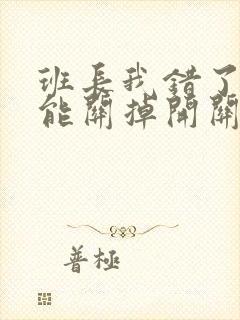 班長我錯了
能關掉開關
普極